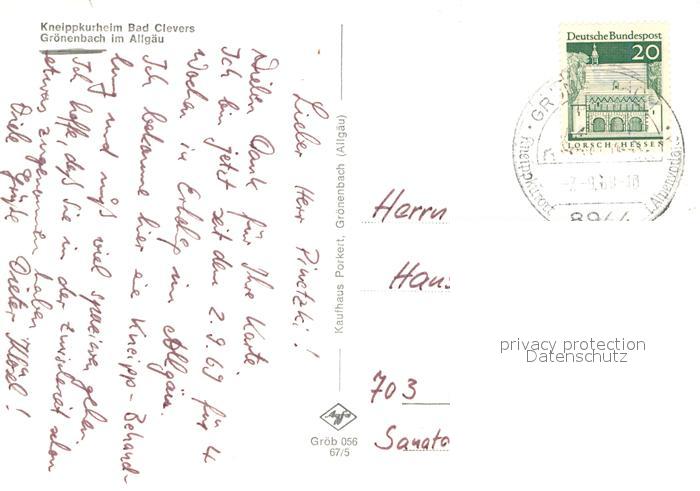 Kneippkurheim Bad Clevers
Grönenbach im Allgäu
Lieber Herr Pinetzki!
Vielen Dank für Ihre Karte.
Ich bin jetzt seit dem 2.9.69 für 4
Wochen in Erholg im Allgäu.
Ich bekomme hier eine Kneipp-Behand-
lung und muß viel spazieren gehen.
Ich hoffe, daß Sie in der Zwischenzeit schon
etwas zugenommen haben
Viele Grüße Dieter
Kaufhaus Porkert, Grönenbach (Allgäu)
Agfa
Gröb 056
67/5
Deutsche Bundespost
20
LORSCH/HESSEN
8944
Kneippkurort
Herrn
Hans
703
Sanato
privacy protection
Datenschutz